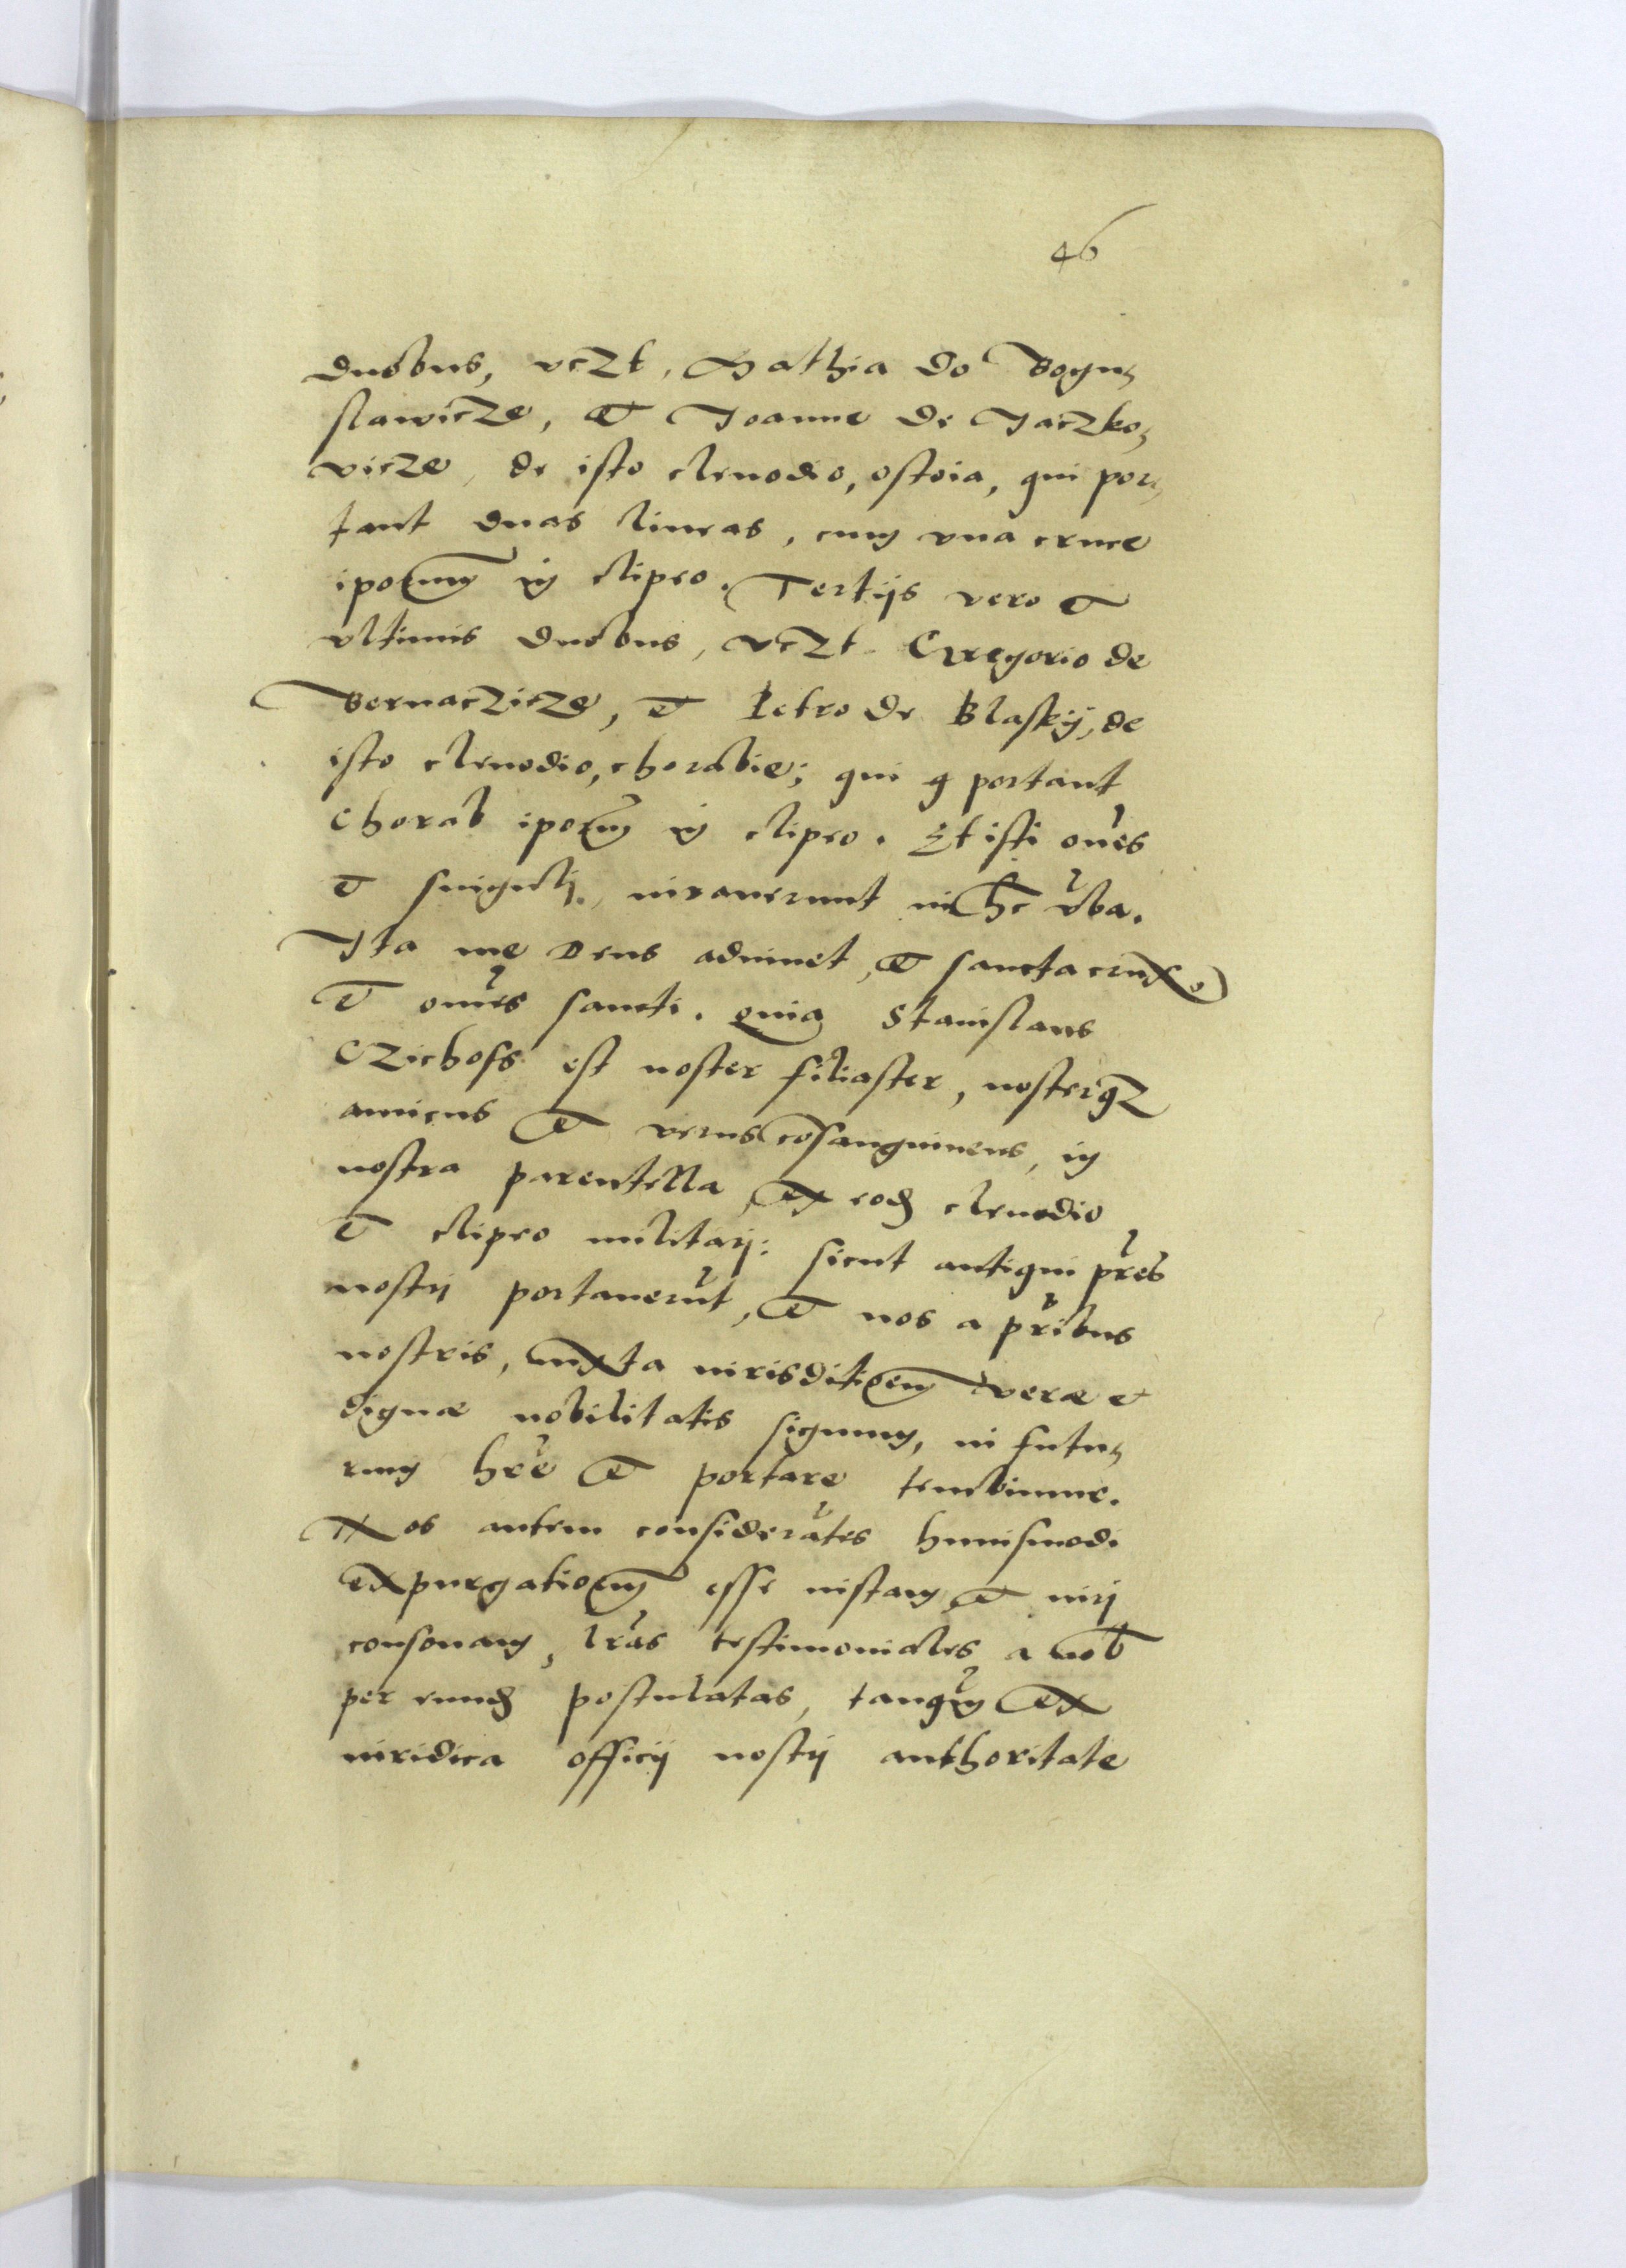 46
duobus, vczt, Mathia de Bogu,
slawicze, et Joanne de Jaczko,
vicze, de isto clenodio, ostoia, qui por,
tant duas lineas, cum vna cruce
ipoꝝum in clipeo. Tertijs vero et
vltimis duobus, vczt Gregorio de
Bernaczicze, et Petro de Blaskij, de
isto clenodio, chorabie; qui q portant
chorab ipoꝝum in clipeo. Et isti oñes
et singuli, iurauerunt in hec v̄ba.
Ita me Deus adiuuet, et sancta crux,
et omēs sancti. quia Stanislaus
Czichoss est noster filiaster, nosterqz
amicus et verus cōsanguineus, in
nostra parentella, ex eod clenodio
et clipeo militarj: sicut antiqui pr̄es
nostrj portauerūt, et nos a pr̄ibus
nostris, iuxta iurisditioem veræ et
dignæ nobilitatis signum, in futu,
rum hr̄e et portare tenebimur.
Nos autem considerātes huiusmodi
expurgationem esse iustam et iurj
consonam, lr̄as testimoniales a nob
per eund postulatas, tanq̄m ex
iuridica officij nostrj authoritate